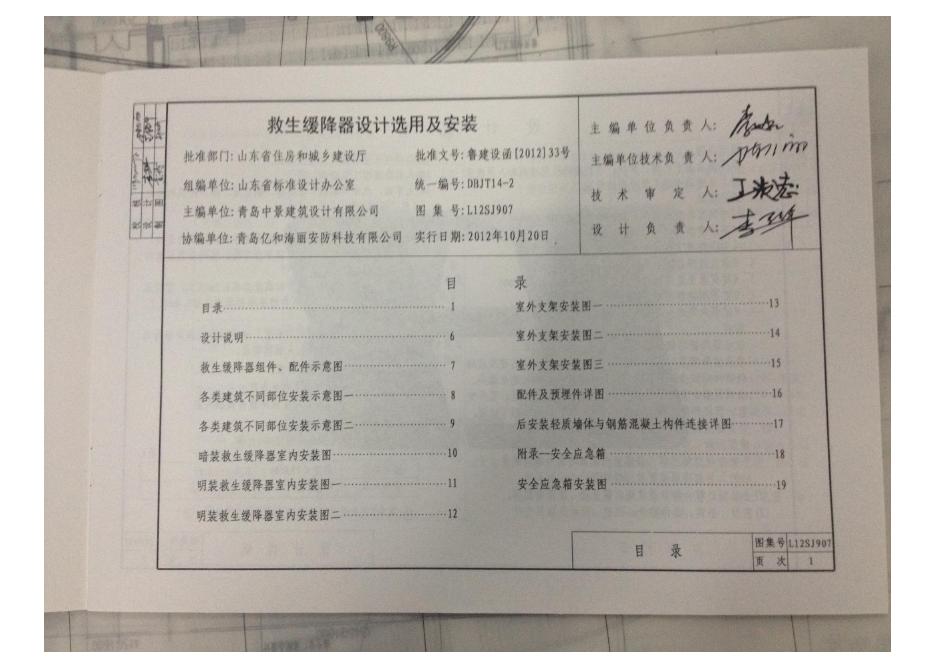 救生缓降器设计选用及安装
批准部门:山东省住房和城乡建设厅 批准文号:鲁建设函[2012]33号
组编单位:山东省标准设计办公室 统一编号:DBJT14-2
主编单位:青岛中景建筑设计有限公司 图 集 号:L12SJ907
协编单位:青岛亿和海丽安防科技有限公司 实行日期:2012年10月20日
主 编 单 位 负 责 人:
主编单位技术负 责 人:
技 术 审 定 人:
设 计 负 责 人:
目 录
目录 1
设计说明 6
救生缓降器组件、配件示意图 7
各类建筑不同部位安装示意图一 8
各类建筑不同部位安装示意图二 9
暗装救生缓降器室内安装图 10
明装救生缓降器室内安装图一 11
明装救生缓降器室内安装图二 12
室外支架安装图一 13
室外支架安装图二 14
室外支架安装图三 15
配件及预埋件详图 16
后安装轻质墙体与钢筋混凝土构件连接详图 17
附录一安全应急箱 18
安全应急箱安装图 19
目 录
图集号 L12SJ907
页 次 1